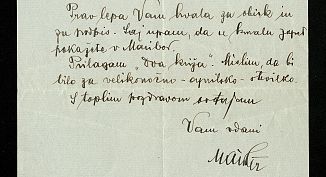 Prav lepa Vam hvala za obisk in
za podpis. Saj upam, da v kratu zopet
pokažete v Maribor.
Prilagam "dva križa". Mislim, da bi
bilo za velikonočno-aprilsko-številko.
S toplim pozdravom ostajam
Vam vdani